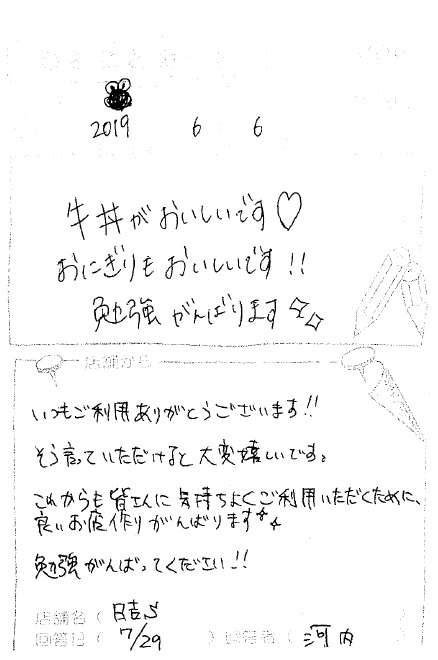 2019 6 6
牛丼がおいしいです♡
おにぎりもおいしいです!!
勉強がんばります
店舗から
いつもご利用ありがとうございます!!
そう言っていただけると大変嬉しいです。
これからも皆さんに気持ちよくご利用いただくために、
良いお店作りがんばります
勉強がんばってください!!
店舗名( 日吉S )
回答日( 7/29 ) 回答者( 河内